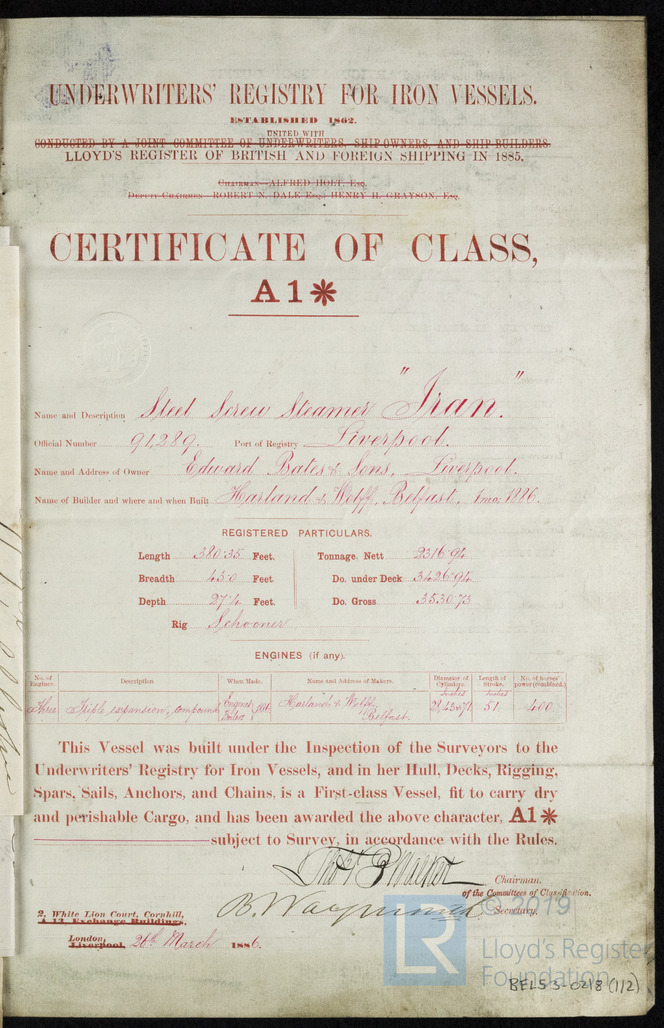 UNDERWRITERS' REGISTRY FOR IRON VESSELS.
ESTABLISHED 1862.
UNITED WITH
CONDUCTED BY A JOINT COMMITTEE OF UNDERWRITERS, SHIPOWNERS, AND SHIP BUILDERS.
LLOYD'S REGISTER OF BRITISH AND FOREIGN SHIPPING IN 1885.
CHAIRMAN—ALFRED HOLT, ESQ.
DEPUTY-CHAIRMEN—ROBERT N. DALE ESQ.; HENRY H. GRAYSON, ESQ.
CERTIFICATE OF CLASS,
A1*
Name and Description Steel Screw Steamer "Iran."
Official Number 91,289. Port of Registry Liverpool.
Name and Address of Owner Edward Bates & Sons, Liverpool.
Name of Builder and where and when Built Harland & Wolff, Belfast, 1mo: 1886.
REGISTERED PARTICULARS.
Length 380.35 Feet. Tonnage. Nett 2316.94
Breadth 45.0 Feet Do. under Deck 3426.94
Depth 27.4 Feet. Do. Gross 3530.73
Rig Schooner
ENGINES (if any).
No. of Engines. Description When Made. Name and Address of Makers. Diameter of Cylinders. Length of Stroke. No. of horses' power (combined.)
Inches Inches
Three Triple expansion, compound Engines Boilers 1886 Harland & Wolff, Belfast. 51 400
This Vessel was built under the Inspection of the Surveyors to the
Underwriters' Registry for Iron Vessels, and in her Hull, Decks, Rigging,
Spars, Sails, Anchors, and Chains, is a First-class Vessel, fit to carry dry
and perishable Cargo, and has been awarded the above character, A1*
subject to Survey, in accordance with the Rules.
Walker Chairman.
of the Committees of Classification.
B. Waymouth Secretary.
2, White Lion Court, Cornhill,
A 13, Exchange Buildings,
London,
Liverpool, 26th March 1886.
© 2019
LR Lloyd's Register
Foundation
BEL53-0218 (1/2)